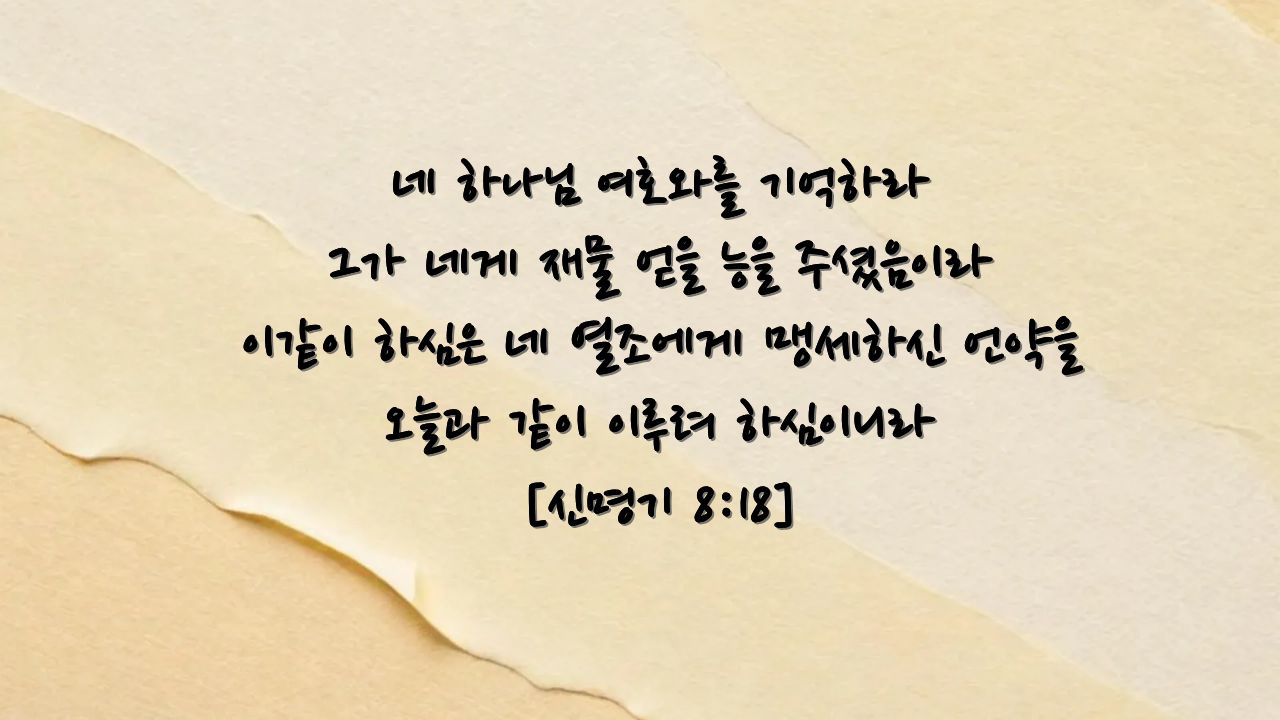 네 하나님 여호와를 기억하라
그가 네게 재물 얻을 능을 주셨음이라
이같이 하심은 네 열조에게 맹세하신 언약을
오늘과 같이 이루려 하심이니라
[신명기 8:18]